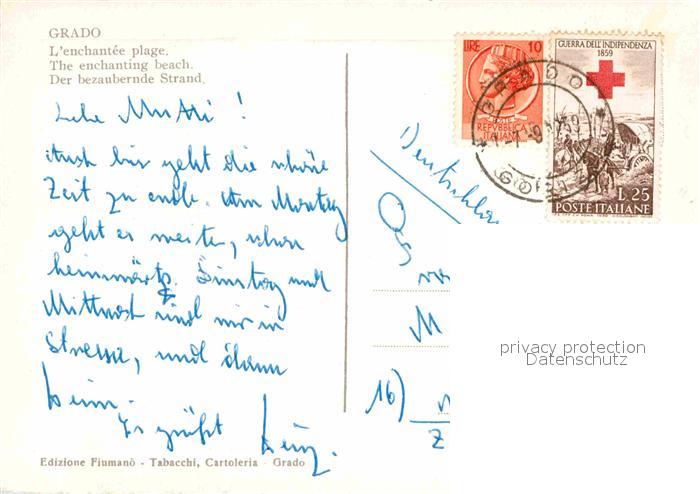 GRADO
L'enchantée plage.
The enchanting beach.
Der bezaubernde Strand.
Liebe Mutti !
Auch hier geht die schöne
Zeit zu Ende. Am Montag
geht es weiter, schon
heimwärts. Dinstag und
Mittwoch sind wir in
Stresa, und dann
heim.
Es grüßt
Heinz.
Edizione Fiumanò - Tabacchi, Cartoleria - Grado
LIRE 10
POSTE
REPVBBLICA
ITALIANA
GUERRA DELL'INDIPENDENZA
1859
L.25
POSTE ITALIANE
GRADO
Deutschla
M
16)
privacy protection
Datenschutz